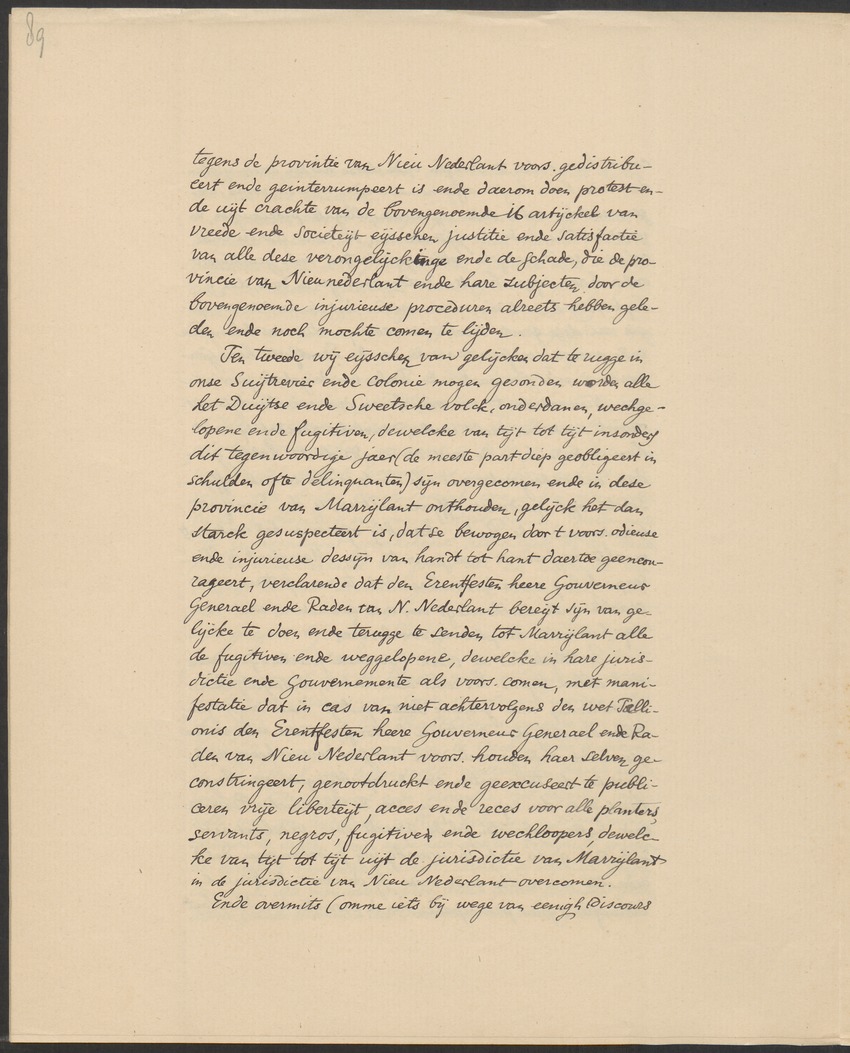 89
tegens de provintie van Nieu Nederlant voors. gedistribu-
eert ende geinterrumpeert is ende daerom doen protest en-
de uijt crachte van de bovengenoemde 16 artijckel van
vreede ende societeijt eijsschen justitie ende satisfactie
van alle dese verongelijckinge ende de schade, die de pro-
vincie van Nieunederlant ende hare subjecten door de
bovengenoemde injurieuse proceduren alreets hebben gele-
den ende noch mochte comen te lijden.
Ten tweede wij eijsschen van gelijcken dat terugge in
onse Suijtrevier ende Colonie mogen gesonden worden alle
het Duijtse ende Sweetsche volck, onderdanen, wechge-
lopene ende fugitiven, dewelcke van tijt tot tijt insonderh
dit tegenwoordige jaer (de meeste part diep geobligeert in
schulden ofte delinquanten) sijn overgecomen ende in dese
provincie van Marrijlant onthouden, gelijck het dan
starck gesuspecteert is, dat se bewogen door t voors. odieuse
ende injurieuse dessijn van handt tot hant daertoe geencou-
rageert, verclarende dat den Erentfesten heere Gouverneur
Generael ende Raden van N. Nederlant bereijt sijn van ge-
lijcke te doen ende terugge te senden tot Marrijlant alle
de fugitiven ende weggelopene, dewelcke in hare juris-
dictie ende Gouvernemente als voors. comen, met mani-
festatie dat in cas van niet achtervolgens den wet Talli-
onis den Erentfesten heere Gouverneur Generael ende Ra-
den van Nieu Nederlant voors. houden haer selven ge-
constringeert, genootdruckt ende geexcuseert te publi-
ceren vrije liberteijt, acces ende reces voor alle planters,
servants, negros, fugitiven ende wechloopers, dewelc-
ke van tijt tot tijt uijt de jurisdictie van Marrijlant
in de jurisdictie van Nieu Nederlant overcomen.
Ende overmits (omme iets bij wege van eenigh Discours